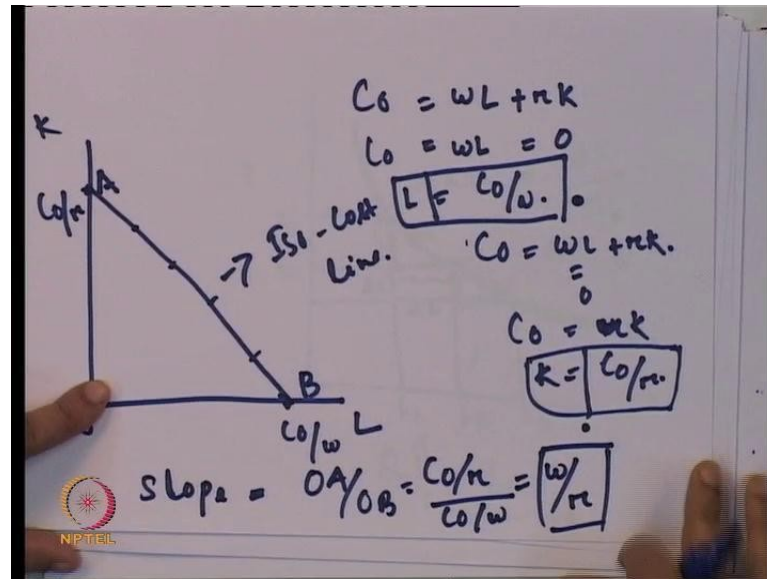 K
A
C0/r
Iso-cost
Line.
B
C0/w L
C0 = wL + rK
C0 = wL = 0
L = C0/w.
C0 = wL + rK.
=
0
C0 = rK
K = C0/r.
Slope = OA/OB = C0/r / C0/w = w/r
NPTEL